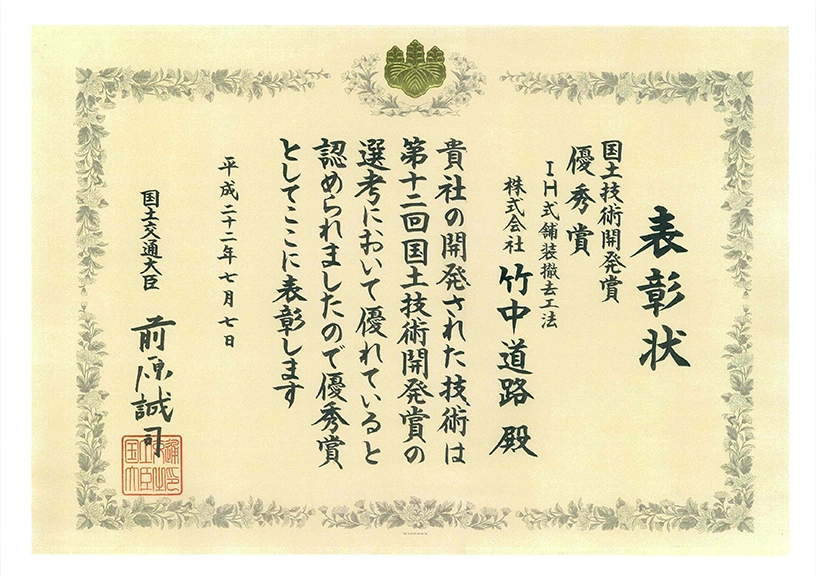 表彰状
国土技術開発賞
優秀賞
IH式舗装撤去工法
株式会社 竹中道路 殿
貴社の開発された技術は
第十二回国土技術開発賞の
選考において優れていると
認められましたので優秀賞
としてここに表彰します
平成二十二年七月七日
国土交通大臣
前原誠司